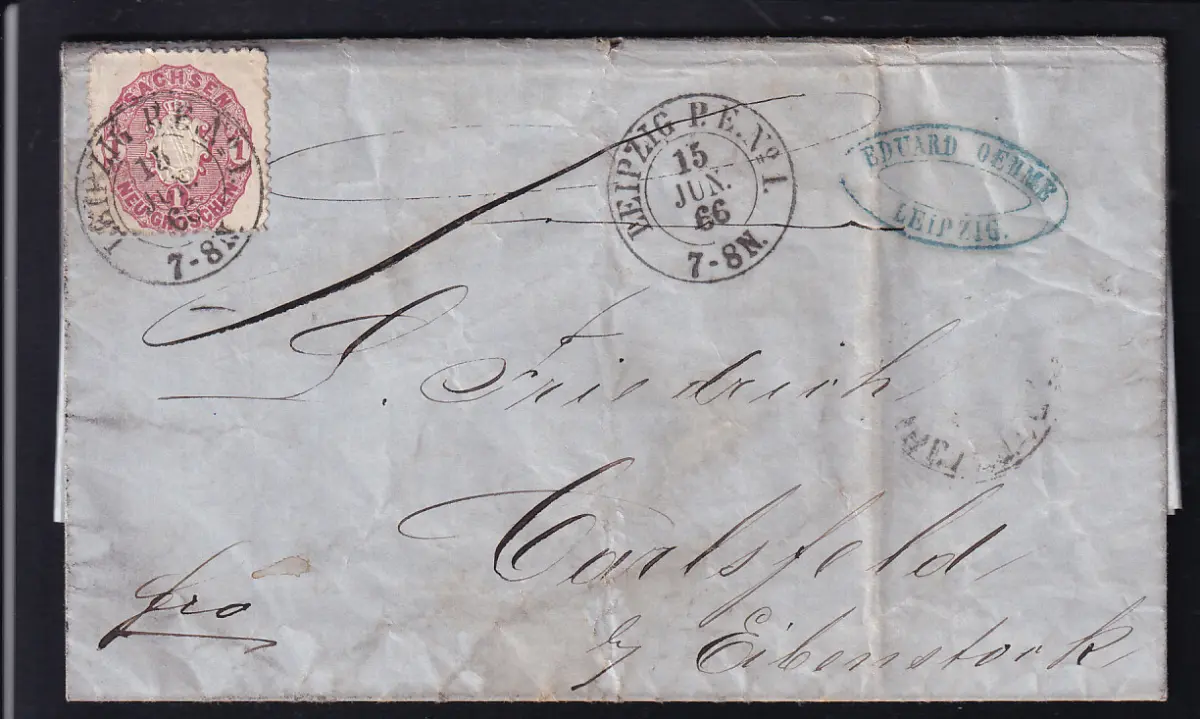 SACHSEN
1 1
NEU-GROSCHEN
LEIPZIG P.E. No 1.
15
JUN.
66
7-8N.
LEIPZIG P.E. No 1.
15
JUN.
66
7-8N.
EDUARD OEHME
LEIPZIG.
L. Friedrich
Carlsfeld
b/ Eibenstock
fro